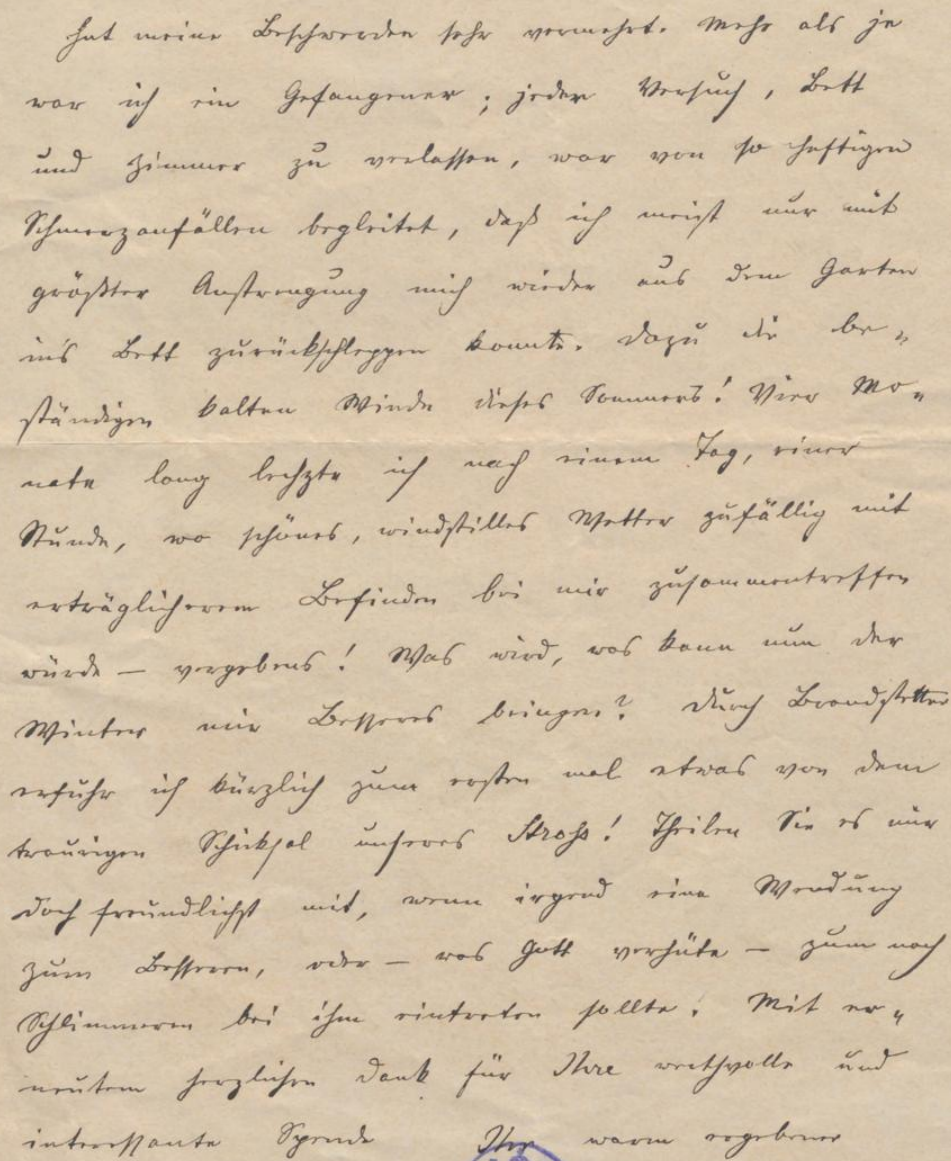 hat meine Beschwerden sehr vermehrt. Mehr als je
war ich ein Gefangener; jeder Versuch, Bett
und Zimmer zu verlassen, war von so heftigen
Schmerzanfällen begleitet, daß ich meist nur mit
größter Anstrengung mich wieder aus dem Garten
in's Bett zurückschleppen konnte. Dazu die be-
ständigen kalten Winde dieses Sommers! Vier Mo-
nate lang lechzte ich nach einem Tag, einer
Stunde, wo schönes, windstilles Wetter zufällig mit
erträglicherem Befinden bei mir zusammentreffen
würde — vergebens! Was wird, was kann nun der
Winter mir Besseres bringen? Durch Brandstetter
erfuhr ich kürzlich zum ersten mal etwas von dem
traurigen Schicksal unseres Strohs! Theilen Sie es mir
doch freundlichst mit, wenn irgend eine Wendung
zum Besseren, oder — was Gott verhüte — zum noch
Schlimmeren bei ihm eintreten sollte. Mit er-
neutem herzlichen Dank für Ihre werthvolle und
interessante Spende Ihr warm ergebener